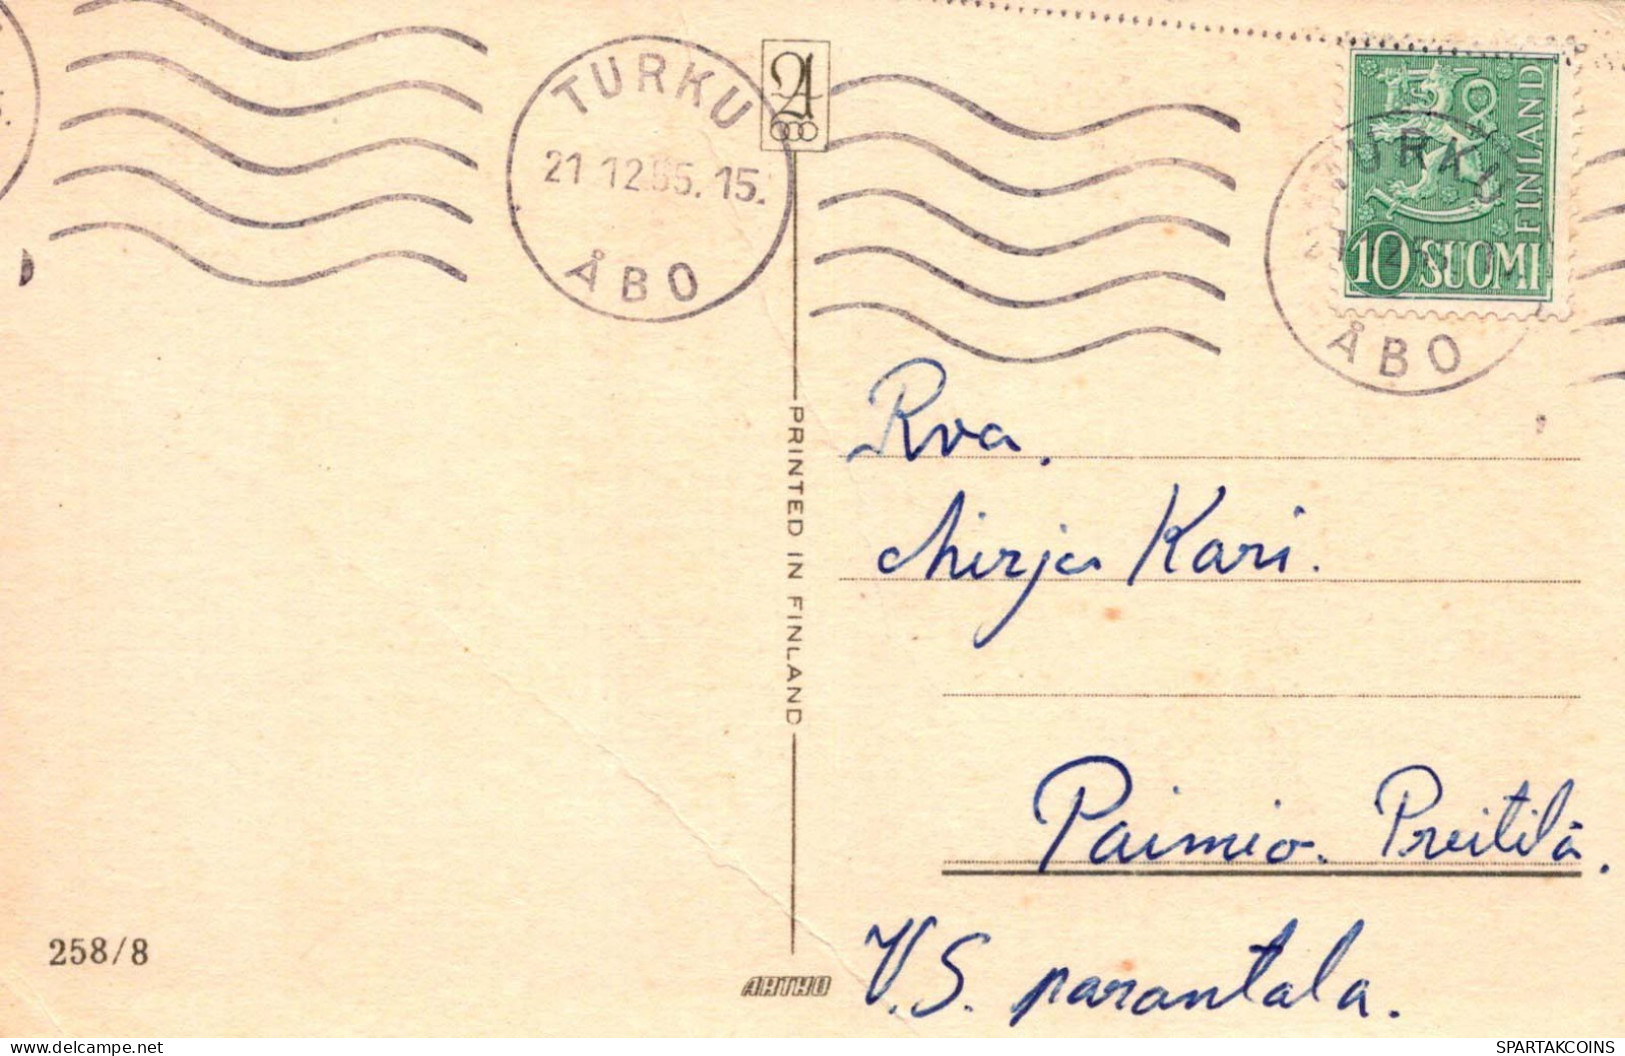 TURKU
21.12.65.15.
ÅBO
FINLAND
10 SUOMI
ÅBO
PRINTED IN FINLAND
Rva.
Mirja Kari.
Paimio. Preitilä.
V.S. parantola.
258/8
ARTKO
delcampe.net
SPARTAKCOINS